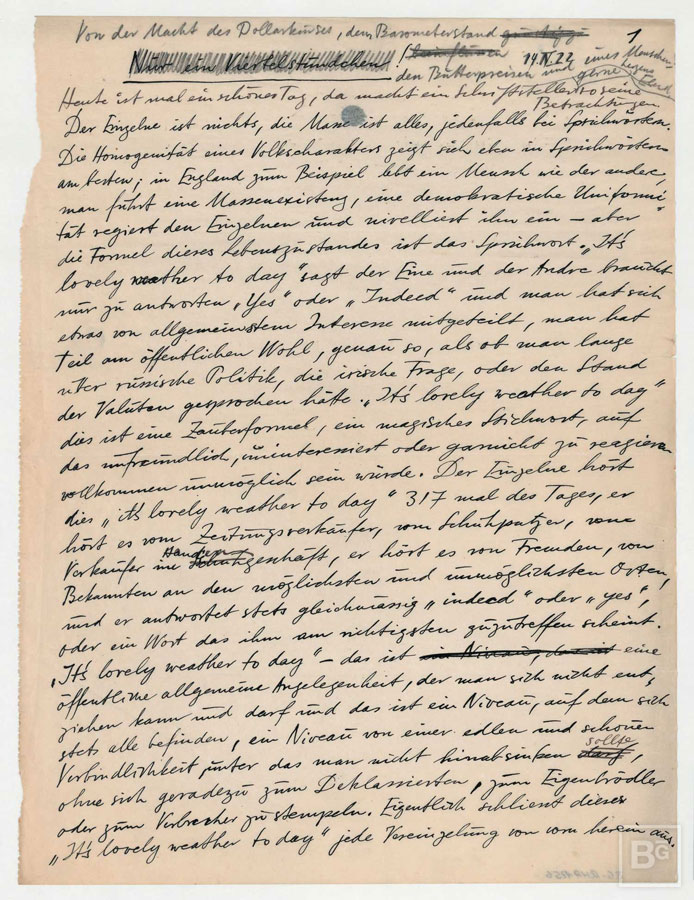 Von der Macht des Dollarkurses, dem Barometerstand
1
Nur ein Viertelstündchen!
14.IV.22
den Butterpreisen und eines Menschen
gerne
Heute ist mal ein schöner Tag, da macht ein Schriftsteller so seine
Betrachtungen
Der Einzelne ist nichts, die Masse ist alles, jedenfalls bei Sprichworten.
Die Homogenität eines Volkscharakters zeigt sich eben in Sprichwörtern
am besten; in England zum Beispiel lebt ein Mensch wie der andere,
man führt eine Massenexistenz, eine demokratische Uniformi-
tät regiert den Einzelnen und nivelliert ihn ein – aber
die Formel dieses Lebenszustandes ist das Sprichwort. „It's
lovely weather to day" sagt der Eine und der Andre braucht
nur zu antworten „Yes" oder „Indeed" und man hat sich
etwas von allgemeinstem Interesse mitgeteilt, man hat
Teil am öffentlichen Wohl, genau so, als ob man lange
über russische Politik, die irische Frage, oder den Stand
der Valuten gesprochen hätte. „It's lovely weather to day"
dies ist eine Zauberformel, ein magisches Stichwort, auf
das unfreundlich, uninteressiert oder garnicht zu reagieren
vollkommen unmöglich sein würde. Der Einzelne hört
dies „it's lovely weather to day" 317 mal des Tages, er
hört es vom Zeitungsverkäufer, vom Schuhputzer, vom
Verkäufer im Schuhgeschäft, er hört es von Fremden, von
Bekannten an den möglichsten und unmöglichsten Orten,
und er antwortet stets gleichmässig „indeed" oder „yes",
oder ein Wort das ihm am richtigsten zuzutreffen scheint.
„It's lovely weather to day" – das ist ein Niveau, das ist eine
öffentliche allgemeine Angelegenheit, der man sich nicht ent-
ziehen kann und darf und das ist ein Niveau, auf dem sich
stets alle befinden, ein Niveau von einer edlen und schönen
sollte
Verbindlichkeit, unter das man nicht hinabsinken darf,
ohne sich geradezu zum Deklassierten, zum Eigenbrödler
oder zum Verbrecher zu stempeln. Eigentlich schliesst dieses
„It's lovely weather to day" jede Vereinzelung von vorn herein aus.
BG